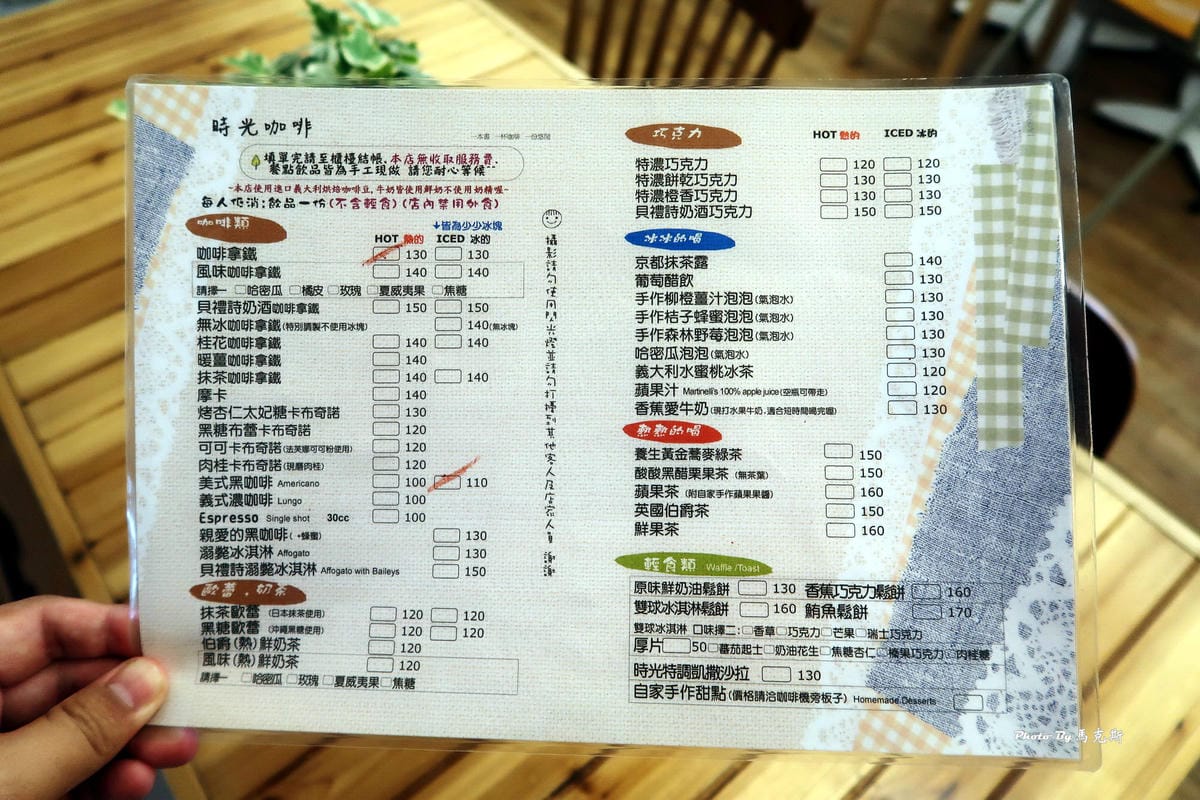 時光咖啡
一本書 一杯咖啡 一份悠閒
填單完請至櫃檯結帳,本店無收取服務費,
餐點飲品皆為手工現做 請您耐心等候^^
~本店使用進口義大利烘焙咖啡豆,牛奶皆使用鮮奶不使用奶精喔~
每人低消:飲品一份(不含輕食)(店內禁用外食)
咖啡類
↓皆為少少冰塊
HOT 熱的 ICED 冰的
咖啡拿鐵 130 130
風味咖啡拿鐵 140 140
請擇一 哈密瓜 橘皮 玫瑰 夏威夷果 焦糖
貝禮詩奶酒咖啡拿鐵 150 150
無冰咖啡拿鐵(特別調製不使用冰塊) 140(無冰塊)
桂花咖啡拿鐵 140 140
暖薑咖啡拿鐵 140
抹茶咖啡拿鐵 140 140
摩卡 140
烤杏仁太妃糖卡布奇諾 130
黑糖布蕾卡布奇諾 120
可可卡布奇諾(法芙娜可可粉使用) 120
肉桂卡布奇諾(現磨肉桂) 120
美式黑咖啡 Americano 100 110
義式濃咖啡 Lungo 100
Espresso Single shot 30cc 100
親愛的黑咖啡(+蜂蜜) 130
溺斃冰淇淋 Affogato 130
貝禮詩溺斃冰淇淋 Affogato with Baileys 150
歐蕾.奶茶
抹茶歐蕾 (日本抹茶使用) 120 120
黑糖歐蕾 (沖繩黑糖使用) 120 120
伯爵(熱)鮮奶茶 120
風味(熱)鮮奶茶 120
請擇一 哈密瓜 玫瑰 夏威夷果 焦糖
攝影請勿使用閃光燈並請勿打擾到其他客人及店家人員 謝謝
巧克力
HOT 熱的 ICED 冰的
特濃巧克力 120 120
特濃餅乾巧克力 130 130
特濃橙香巧克力 130 130
貝禮詩奶酒巧克力 150 150
冰冰的喝
京都抹茶露 140
葡萄醋飲 130
手作柳橙薑汁泡泡(氣泡水) 130
手作桔子蜂蜜泡泡(氣泡水) 130
手作森林野莓泡泡(氣泡水) 130
哈密瓜泡泡(氣泡水) 130
義大利水蜜桃冰茶 120
蘋果汁 Martinelli's 100% apple juice(空瓶可帶走) 120
香蕉愛牛奶(現打水果牛奶,適合短時間喝完喔) 130
熱熱的喝
養生黃金蕎麥綠茶 150
酸酸黑醋栗果茶 (無茶葉) 150
蘋果茶 (附自家手作蘋果果醬) 160
英國伯爵茶 150
鮮果茶 160
輕食類 Waffle /Toast
原味鮮奶油鬆餅 130 香蕉巧克力鬆餅 160
雙球冰淇淋鬆餅 160 鮪魚鬆餅 170
雙球冰淇淋 口味擇二: 香草 巧克力 芒果 瑞士巧克力
厚片 50 蕃茄起士 奶油花生 焦糖杏仁 榛果巧克力 肉桂糖
時光特調凱撒沙拉 130
自家手作甜點(價格請洽咖啡機旁板子) Homemade Desserts
Photo By 馬克斯